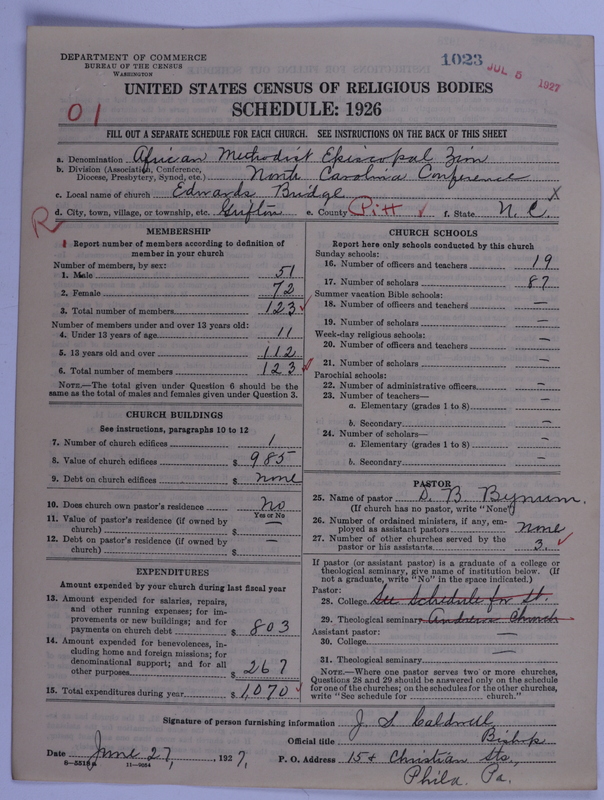 DEPARTMENT OF COMMERCE
BUREAU OF THE CENSUS
WASHINGTON
1023
JUL 5 1927
UNITED STATES CENSUS OF RELIGIOUS BODIES
SCHEDULE: 1926
01
FILL OUT A SEPARATE SCHEDULE FOR EACH CHURCH. SEE INSTRUCTIONS ON THE BACK OF THIS SHEET
a. Denomination African Methodist Episcopal Zion
b. Division (Association, Conference, Diocese, Presbytery, Synod, etc.) North Carolina Conference
c. Local name of church Edwards Bridge X
d. City, town, village, or township, etc. Grifton e. County Pitt f. State N. C.
R
MEMBERSHIP
1 Report number of members according to definition of
member in your church
Number of members, by sex:
1. Male 51
2. Female 72
3. Total number of members 123
Number of members under and over 13 years old:
4. Under 13 years of age 11
5. 13 years old and over 112
6. Total number of members 123
NOTE.—The total given under Question 6 should be
the same as the total of males and females given under Question 3.
CHURCH BUILDINGS
See instructions, paragraphs 10 to 12
7. Number of church edifices 1
8. Value of church edifices $ 985
9. Debt on church edifices $ none
10. Does church own pastor's residence No
Yes or No
11. Value of pastor's residence (if owned by
church) $ —
12. Debt on pastor's residence (if owned by
church) $ —
EXPENDITURES
Amount expended by your church during last fiscal year
13. Amount expended for salaries, repairs,
and other running expenses; for im-
provements or new buildings; and for
payments on church debt $ 803
14. Amount expended for benevolences, in-
cluding home and foreign missions; for
denominational support; and for all
other purposes $ 267
15. Total expenditures during year $ 1070
CHURCH SCHOOLS
Report here only schools conducted by this church
Sunday schools:
16. Number of officers and teachers 19
17. Number of scholars 87
Summer vacation Bible schools:
18. Number of officers and teachers —
19. Number of scholars —
Week-day religious schools:
20. Number of officers and teachers —
21. Number of scholars —
Parochial schools:
22. Number of administrative officers —
23. Number of teachers—
a. Elementary (grades 1 to 8) —
b. Secondary —
24. Number of scholars—
a. Elementary (grades 1 to 8) —
b. Secondary —
PASTOR
25. Name of pastor D. B. Bynum.
(If church has no pastor, write "None")
26. Number of ordained ministers, if any, em-
ployed as assistant pastors none
27. Number of other churches served by the
pastor or his assistants 3
If pastor (or assistant pastor) is a graduate of a college or
theological seminary, give name of institution below. (If
not a graduate, write "No" in the space indicated.)
Pastor:
28. College See Schedule for St.
29. Theological seminary Andrew Church
Assistant pastor:
30. College —
31. Theological seminary —
NOTE.—Where one pastor serves two or more churches,
Questions 28 and 29 should be answered only on the schedule
for one of the churches; on the schedules for the other churches,
write "See schedule for church."
Signature of person furnishing information J. S. Caldwell
Official title Bishop
Date June 27, 1927. P. O. Address 15 & Christian Sts,
Phila. Pa.
8—5518a 11—9054